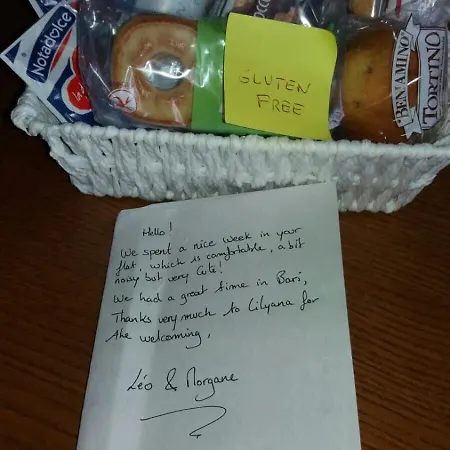 Notadolce
GLUTEN
FREE
BENAMINO
TORTINO
Hello!
We spent a nice week in your
flat, which is comfortable, a bit
noisy but very cute!
We had a great time in Bari,
Thanks very much to Lilyana for
the welcoming,
Léo & Morgane